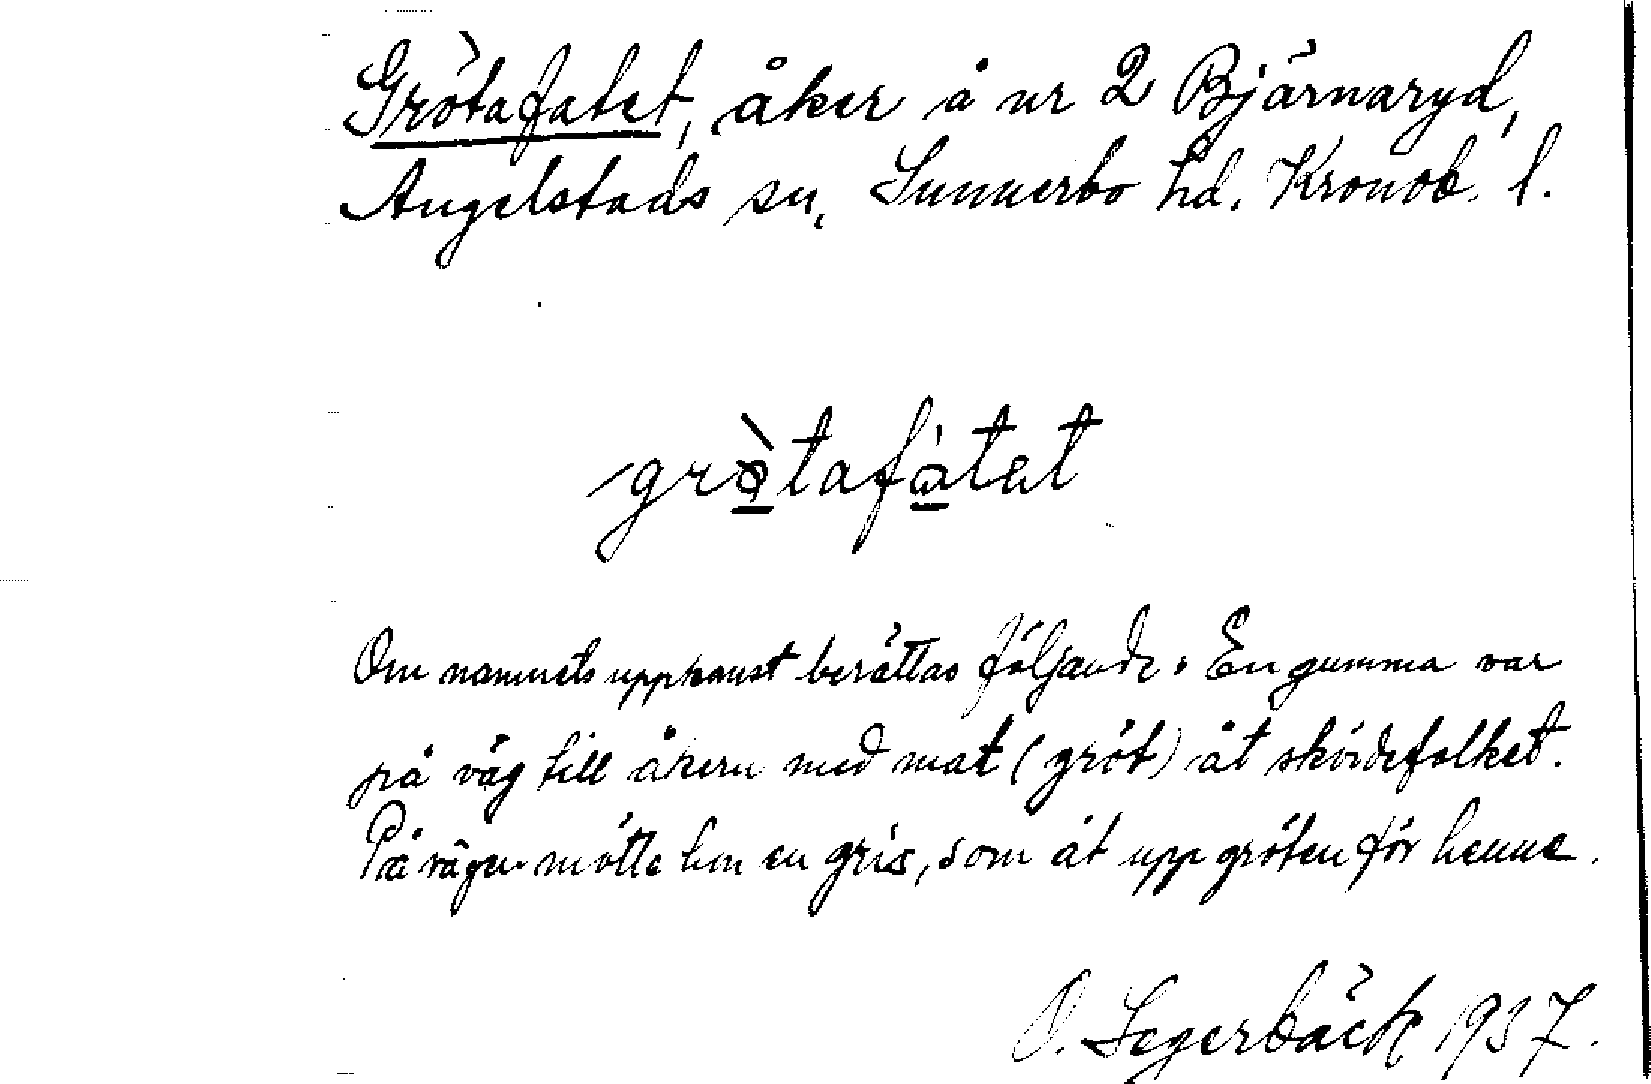 Grötafatet, åker å nr 2 Bjärnaryd,
Angelstads sn, Sunnerbo hd. Kronob. l.
grò̱tafá̱tet
Om namnets uppkomst berättas följande: En gumma var
på väg till åkern med mat (gröt) åt skördefolket.
På vägen mötte hon en gris, som åt upp gröten för henne.
O. Segerbäck 1937.